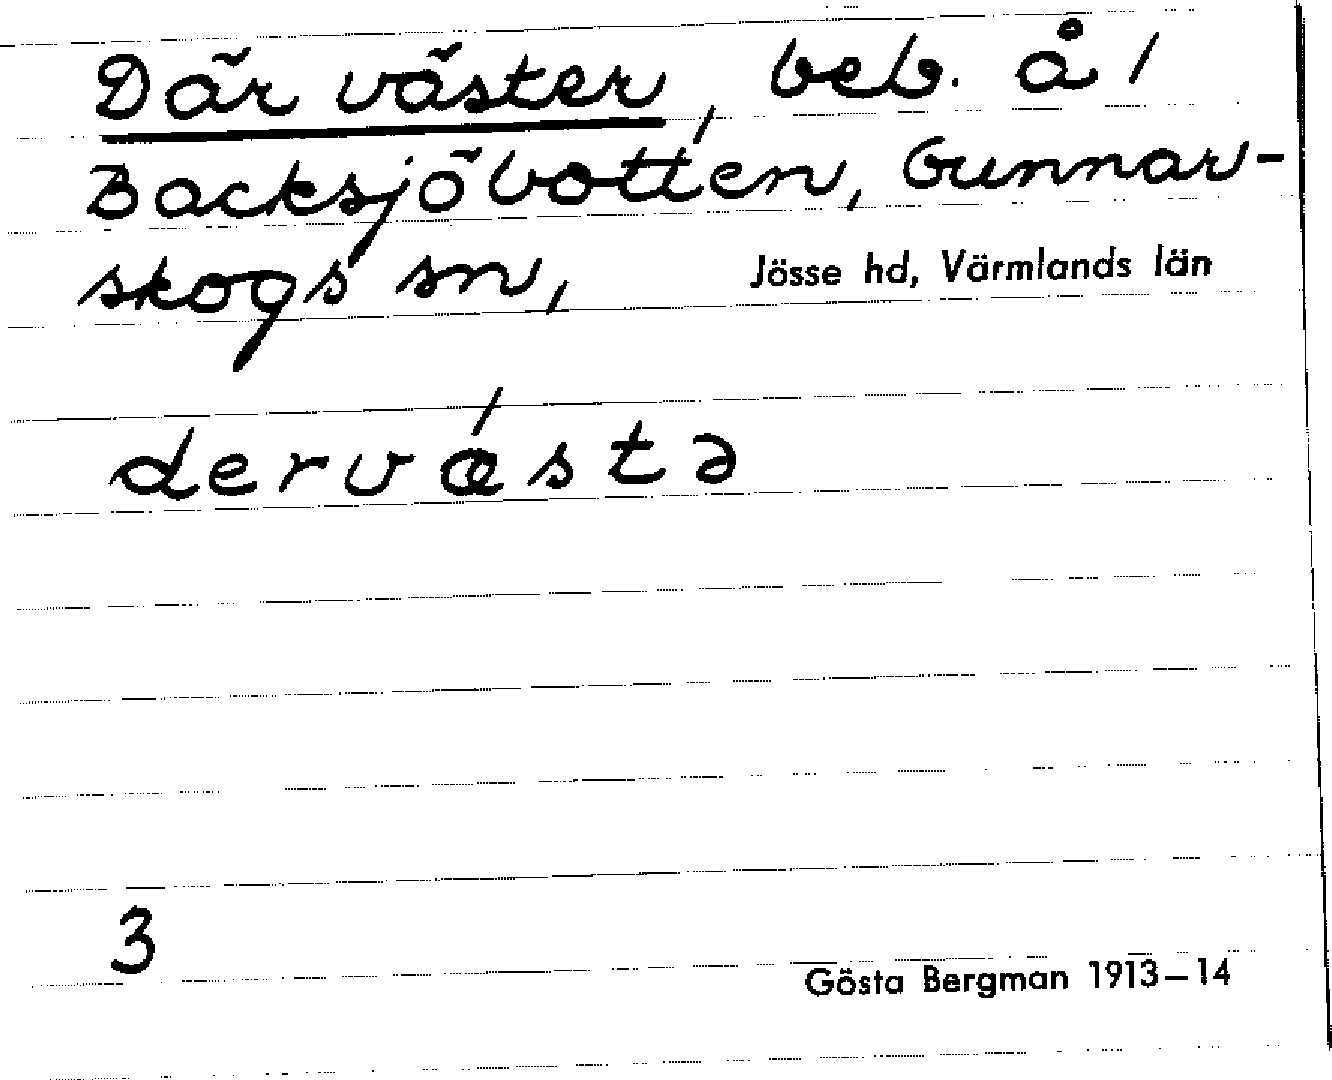 Där väster, beb. å 1
Backsjöbotten, Gunnar-
skogs sn, Jösse hd, Värmlands län
dervǽstə
3
Gösta Bergman 1913–14